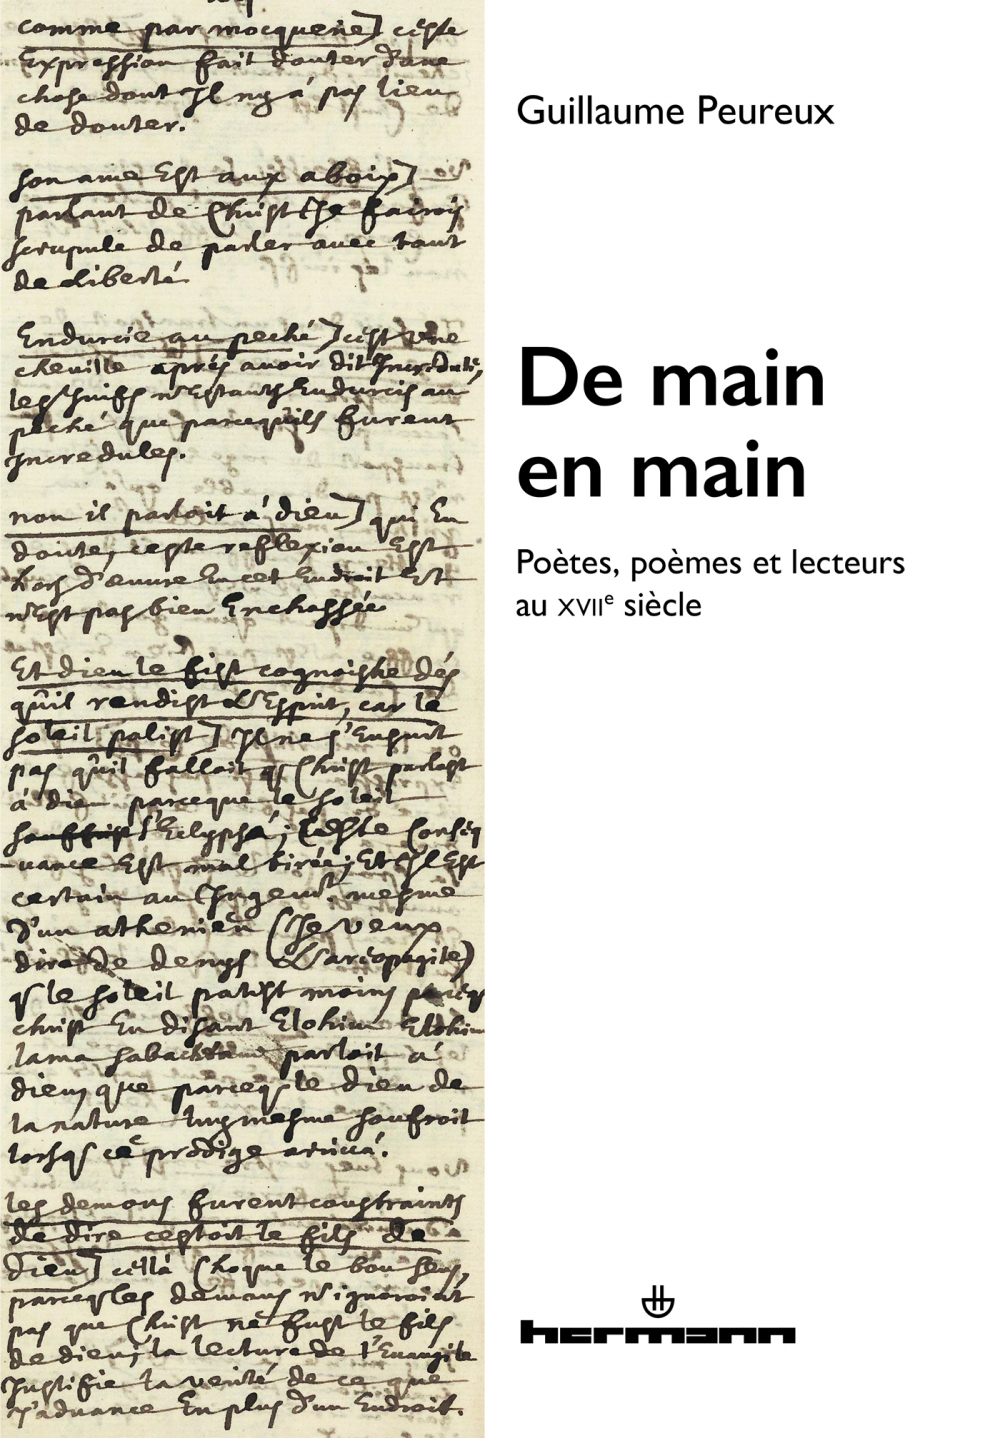 comme par mocquerie] ceste
Expression fait douter d'une
chose dont Il ny a pas lieu
de douter.
son ame Est aux abois]
parlant de Christ Je fairois
scrupule de parler avec tant
de liberté
Endurcie au peché] c'est une
cheville aprés avoir dit Incredule,
les Juifs n'Estants Endurcis au
peché que parcequ'ils furent
Incredules.
non il parloit a' dieu] qui En
doute, ceste reflexion Est
hors d'œuvre En cet Endroit Et
n'Est pas bien Enchassée
Et dieu le fist cognoistre dés
qu'il rendist L'Esprit, car le
soleil palist] Il ne s'Ensuit
pas qu'il fallait q Christ parlast
à dieu parceque le soleil
s'Eclypsa; Ceste Conseq
uance Est mal tirée; Et Il Est
certain au Jugemt mesme
d'un athenien (Je veux
dire de denys L'areopagite)
q le soleil patist moins parceq
christ En disant Elohim Elohim
lama parloit a'
dieu, que parceq le dieu de
la nature luy mesme souffroit
lorsq ce prodige arriva.
les demons furent constraints
de dire cestoit le fils de
dieu] cela Choque le bon sens,
parceq les demons n'ignoroient
pas que Christ ne fust le fils
de dieu; la lecture de l'Evangile
Justifie la verité de ce que
J'advance En plus d'un Endroit.
Guillaume Peureux
De main
en main
Poètes, poèmes et lecteurs
au XVIIe siècle
hermann